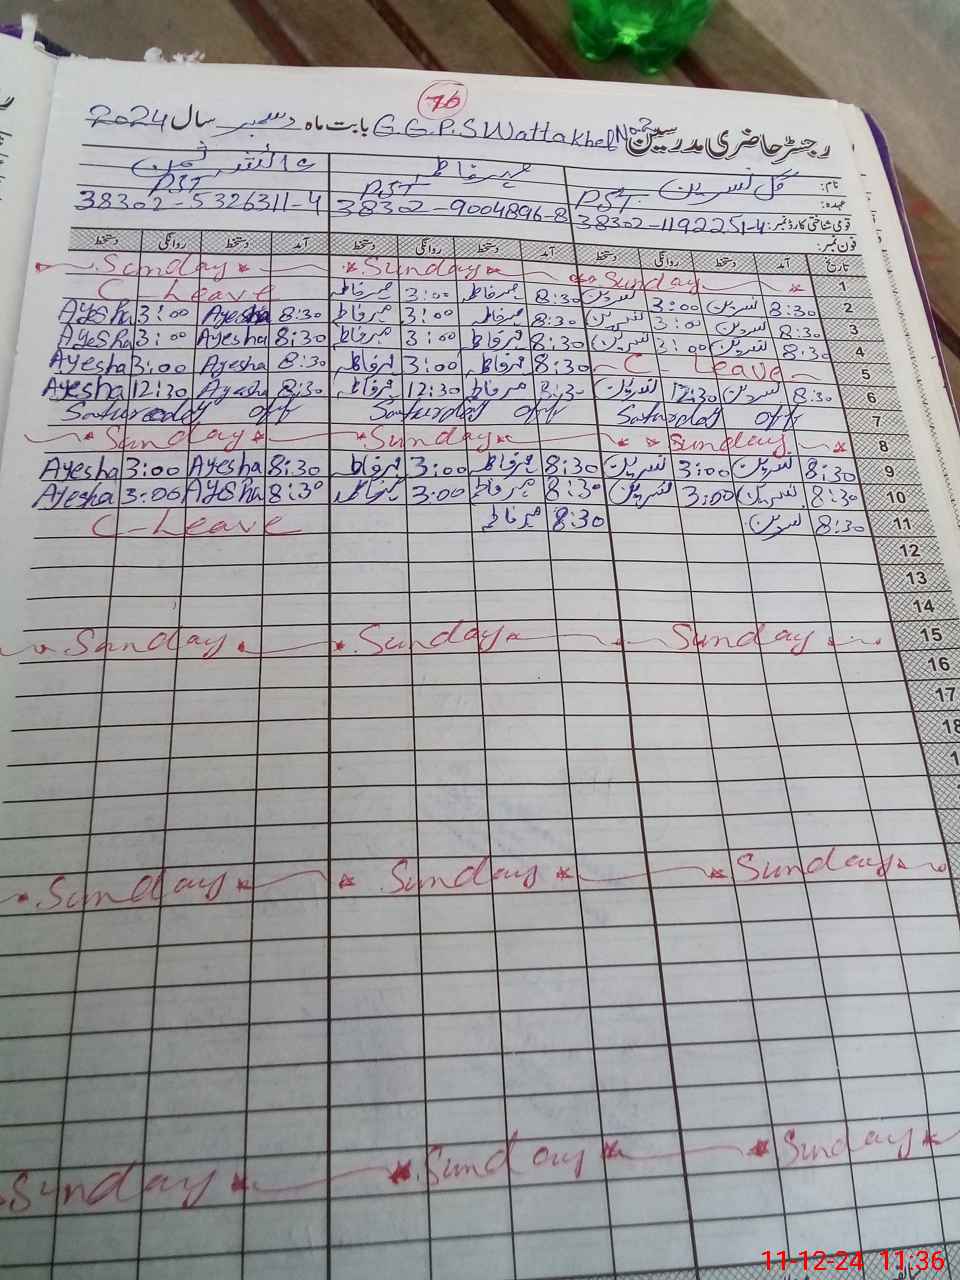 76
رجسٹر حاضری مدرسین G.G.P.S Wattakhel No.2 بابت ماہ دسمبر سال 2024
نام: گل نسرین مہر فاطمہ
عہدہ: PST PST PST
قومی شناختی کارڈ نمبر: 38302-1192251-4 38302-9004896-8 38302-5326311-4
فون نمبر:
تاریخ آمد دستخط روانگی دستخط آمد دستخط روانگی دستخط آمد دستخط روانگی دستخط
1 Sunday Sunday Sunday
2 8:30 نسرین 3:00 نسرین 8:30 مہر فاطمہ 3:00 مہر فاطمہ C-Leave
3 8:30 نسرین 3:00 نسرین 8:30 مہر فاطمہ 3:00 مہر فاطمہ 8:30 Ayesha 3:00 Ayesha
4 8:30 نسرین 3:00 نسرین 8:30 مہر فاطمہ 3:00 مہر فاطمہ 8:30 Ayesha 3:00 Ayesha
5 C-Leave 8:30 مہر فاطمہ 3:00 مہر فاطمہ 8:30 Ayesha 3:00 Ayesha
6 8:30 نسرین 12:30 نسرین 8:30 مہر فاطمہ 12:30 مہر فاطمہ 8:30 Ayesha 12:30 Ayesha
7 Saturday off Saturday off Saturday off
8 Sunday Sunday Sunday
9 8:30 نسرین 3:00 نسرین 8:30 مہر فاطمہ 3:00 مہر فاطمہ 8:30 Ayesha 3:00 Ayesha
10 8:30 نسرین 3:00 نسرین 8:30 مہر فاطمہ 3:00 مہر فاطمہ 8:30 Ayesha 3:00 Ayesha
11 8:30 نسرین 8:30 مہر فاطمہ C-Leave
12
13
14
15 Sunday Sunday Sunday
16
17
18
Sunday Sunday Sunday
Sunday Sunday Sunday
11-12-24 11:36